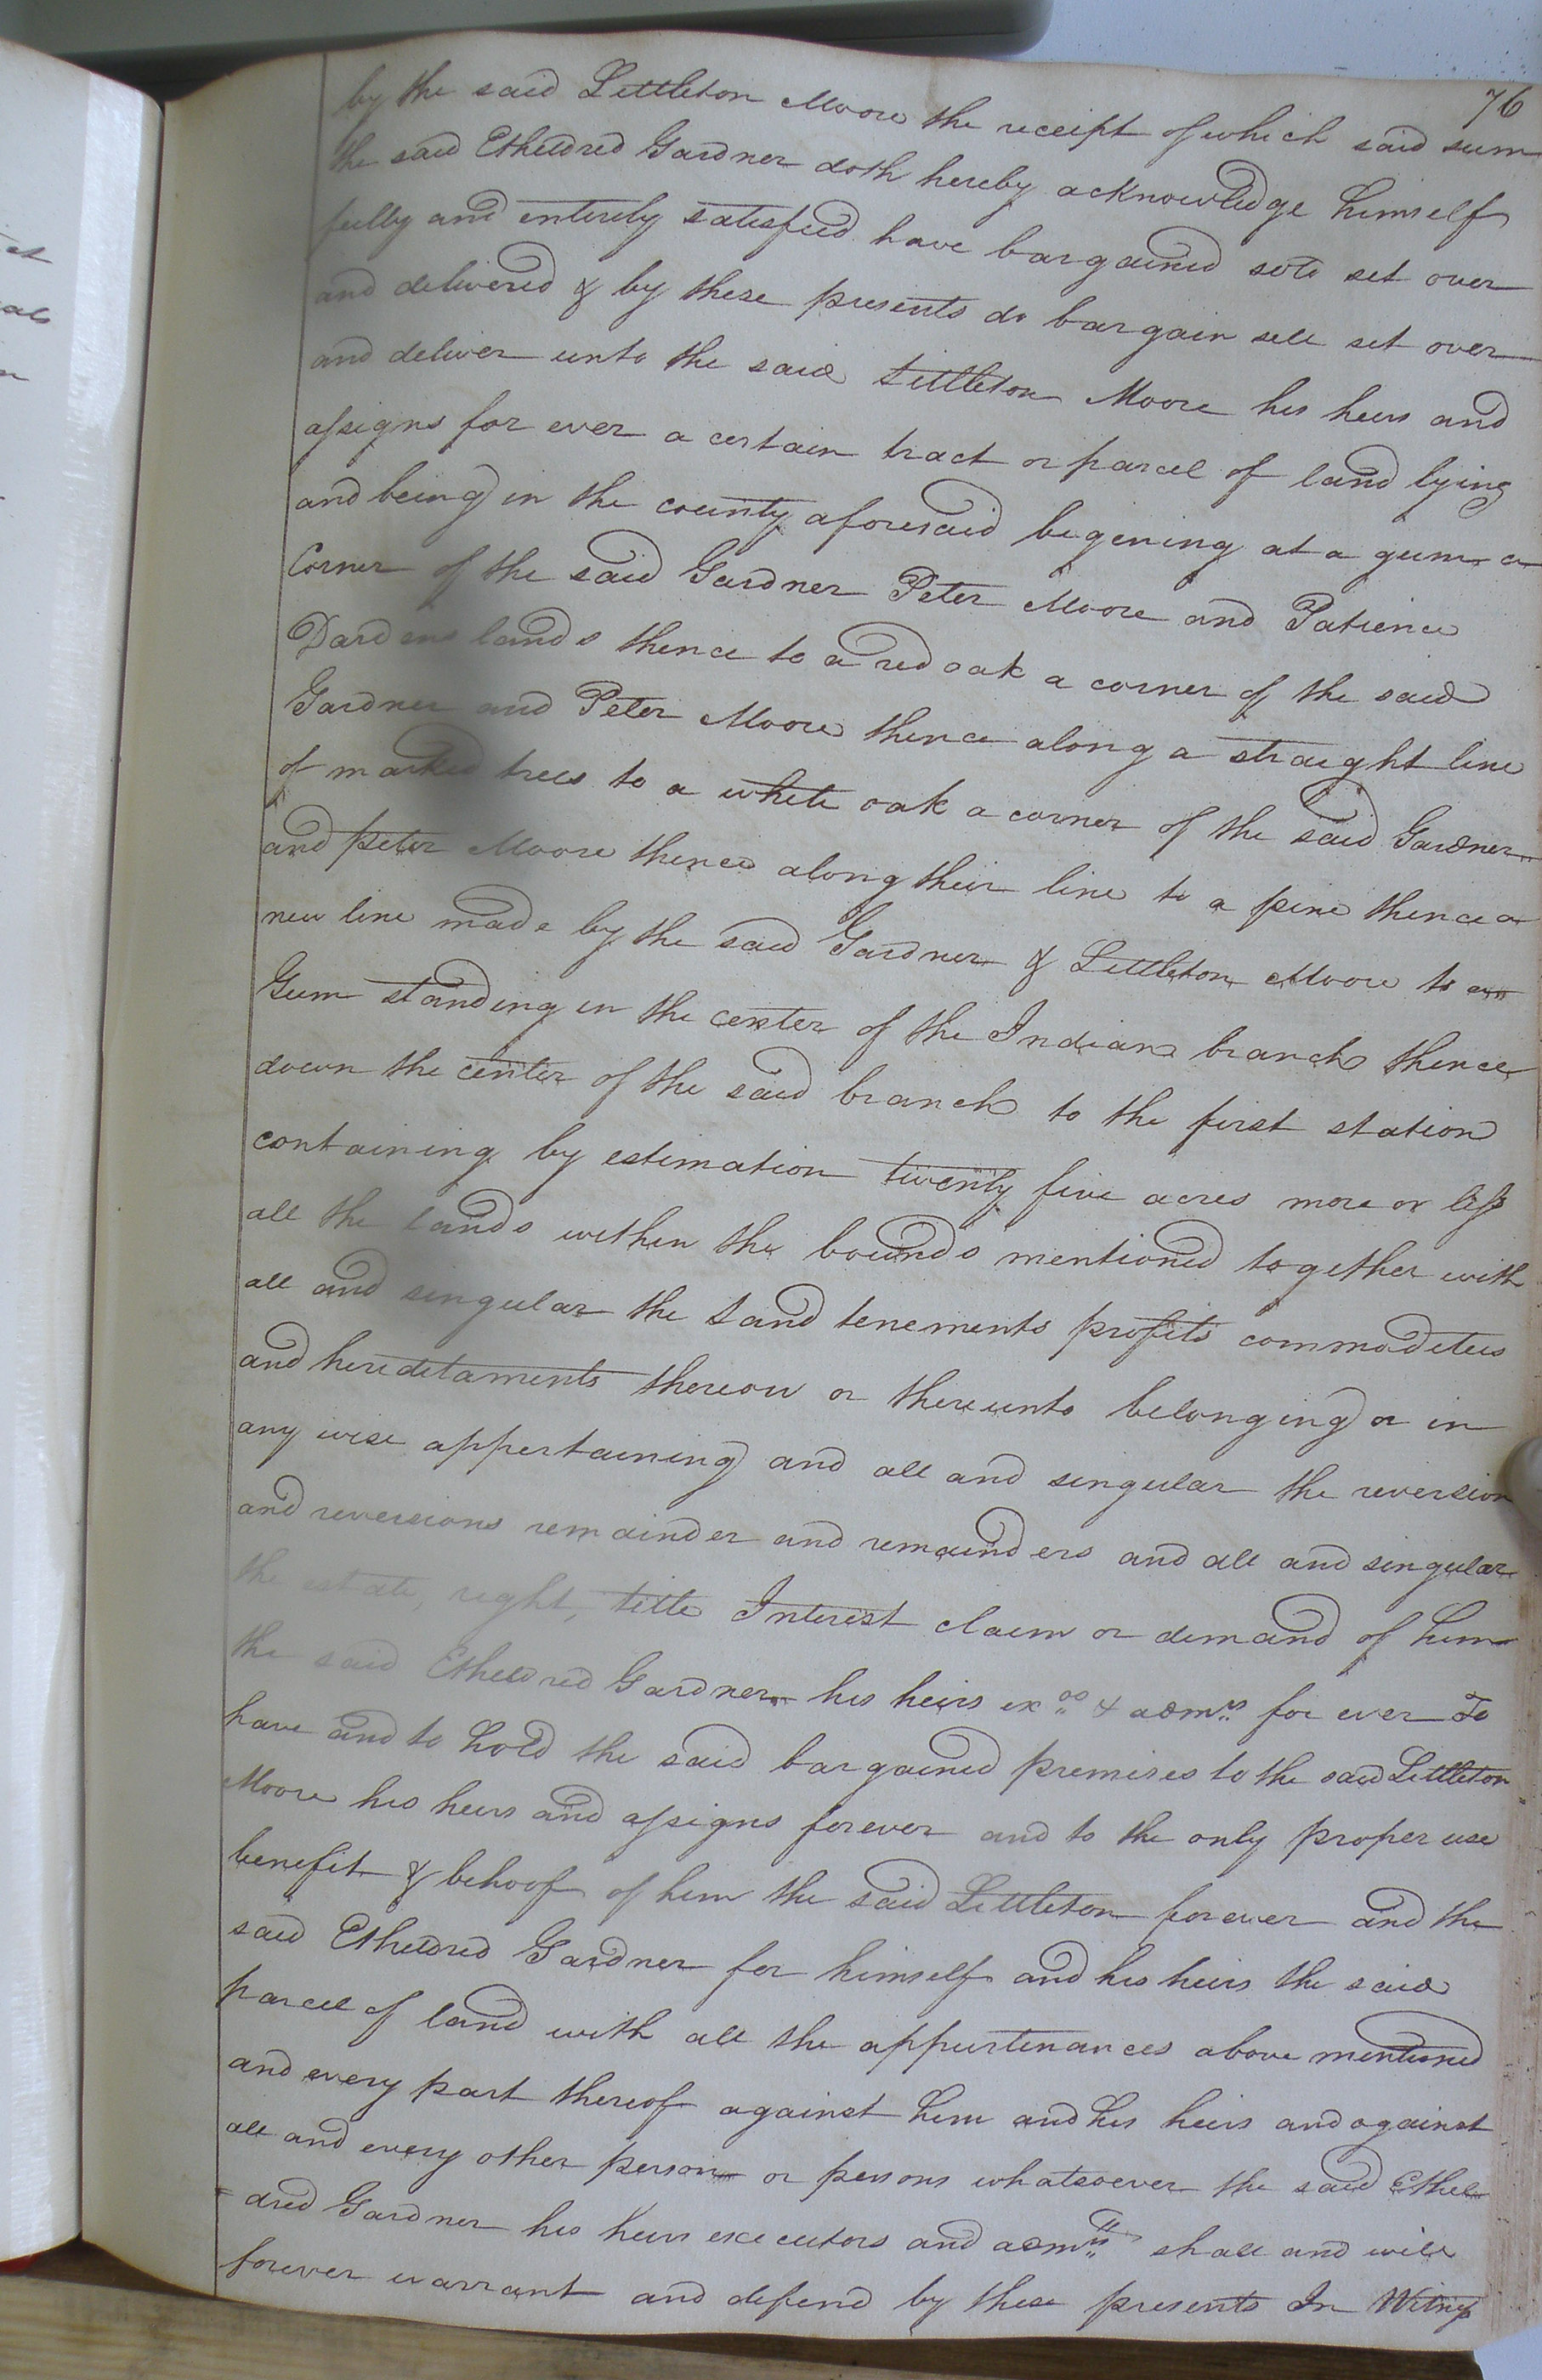 76
by the said Littleton Moore the receipt of which said sum
the said Etheldred Gardner doth hereby acknowledge himself
fully and entirely satisfied have bargained sold set over
and delivered & by these presents do bargain sell set over
and deliver unto the said Littleton Moore his heirs and
assigns for ever a certain tract or parcel of land lying
and being in the county aforesaid begening at a gum a
Corner of the said Gardner Peter Moore and Patience
Dardens lands thence to a red oak a corner of the said
Gardner and Peter Moore thence along a straight line
of marked trees to a white oak a corner of the said Gardner
and peter Moore thence along their line to a pine thence a
new line made by the said Gardner & Littleton Moore to a
Gum standing in the center of the Indian branch thence
down the center of the said branch to the first station
containing by estimation twenty five acres more or less
all the lands within the bounds mentioned together with
all and singular the Land tenements profits commodities
and hereditaments thereon or thereunto belonging or in
any wise appertaining and all and singular the reversion
and reversions remainder and remainders and all and singular
the estate, right, title Interest claim or demand of him
the said Etheldred Gardner his heirs exos & adms for ever To
have and to hold the said bargained premises to the said Littleton
Moore his heirs and assigns forever and to the only proper use
benefit & behoof of him the said Littleton forever and the
said Etheldred Gardner for himself and his heirs the said
parcel of land with all the appurtenances above mentioned
and every part thereof against him and his heirs and against
all and every other person or persons whatsoever the said Ethel
=dred Gardner his heirs executors and adms shall and will
forever warrant and defend by these presents In Witness